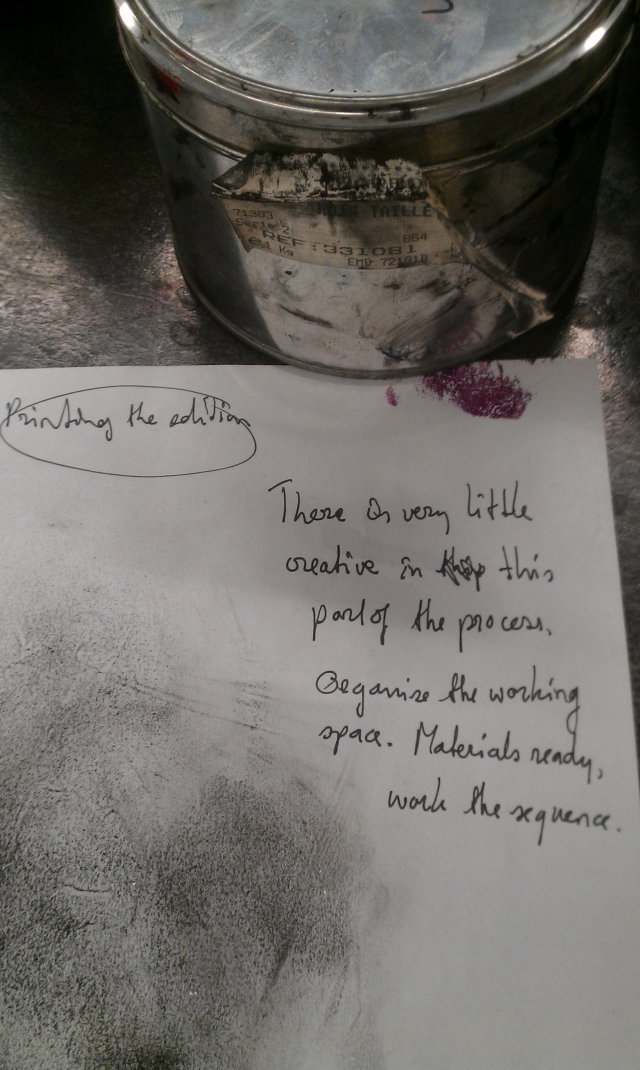 71303
TAILLE
Serie 2
864
REF:331081
1 Kg
EMB 721818
Printing the edition
There is very little
creative in this
part of the process.
Organise the working
space. Materials ready,
work the sequence.